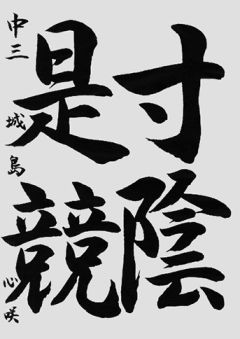 寸陰
是競
中三 城島 心咲